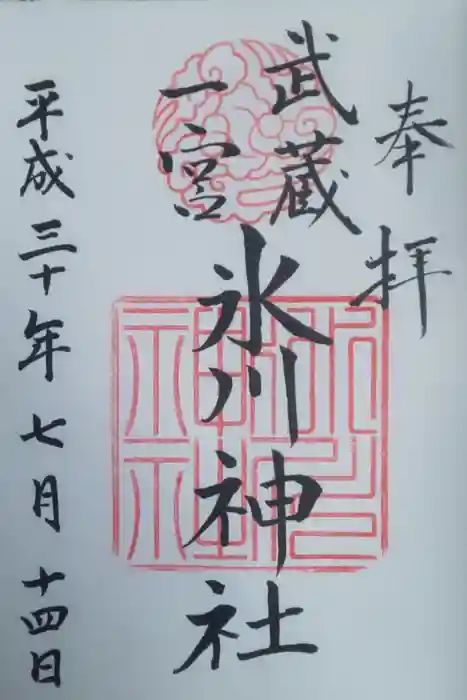 奉拝
武蔵
一宮
氷川神社
平成三十年七月十四日
氷川神社